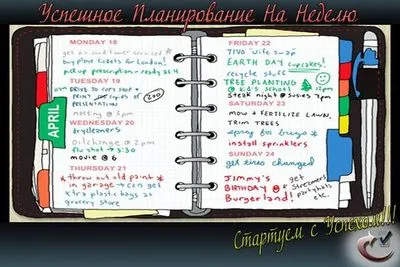 Успешное Планирование На Неделю
MONDAY 18
get a
buy plane tickets for London!
pick up prescription - ready at 4
TUESDAY 19
DRIVE TO COPY SHOP +
PRINT COPIES OF
PRESENTATION
200
meeting @ 5pm
WEDNESDAY 20
drycleaners
oil change @ 2pm
flu shot → 3:30
movie @ 6
THURSDAY 21
* throw out old paint *
in garage → can get
xtra plastic bags at
grocery store
APRIL
FRIDAY 22
EARTH DAY cupcakes!
recycle stuff
TREE PLANTING
@ kid's school
Steak night @ Susies 7pm
SATURDAY 23
MOW + FERTILIZE LAWN,
TRIM TREES
spray for bugs
install sprinklers
SUNDAY 24
get tires changed
JIMMY'S
BIRTHDAY @
Burgerland!
get
* streamers
party hats
etc.
Стартуем с Успехом!!!